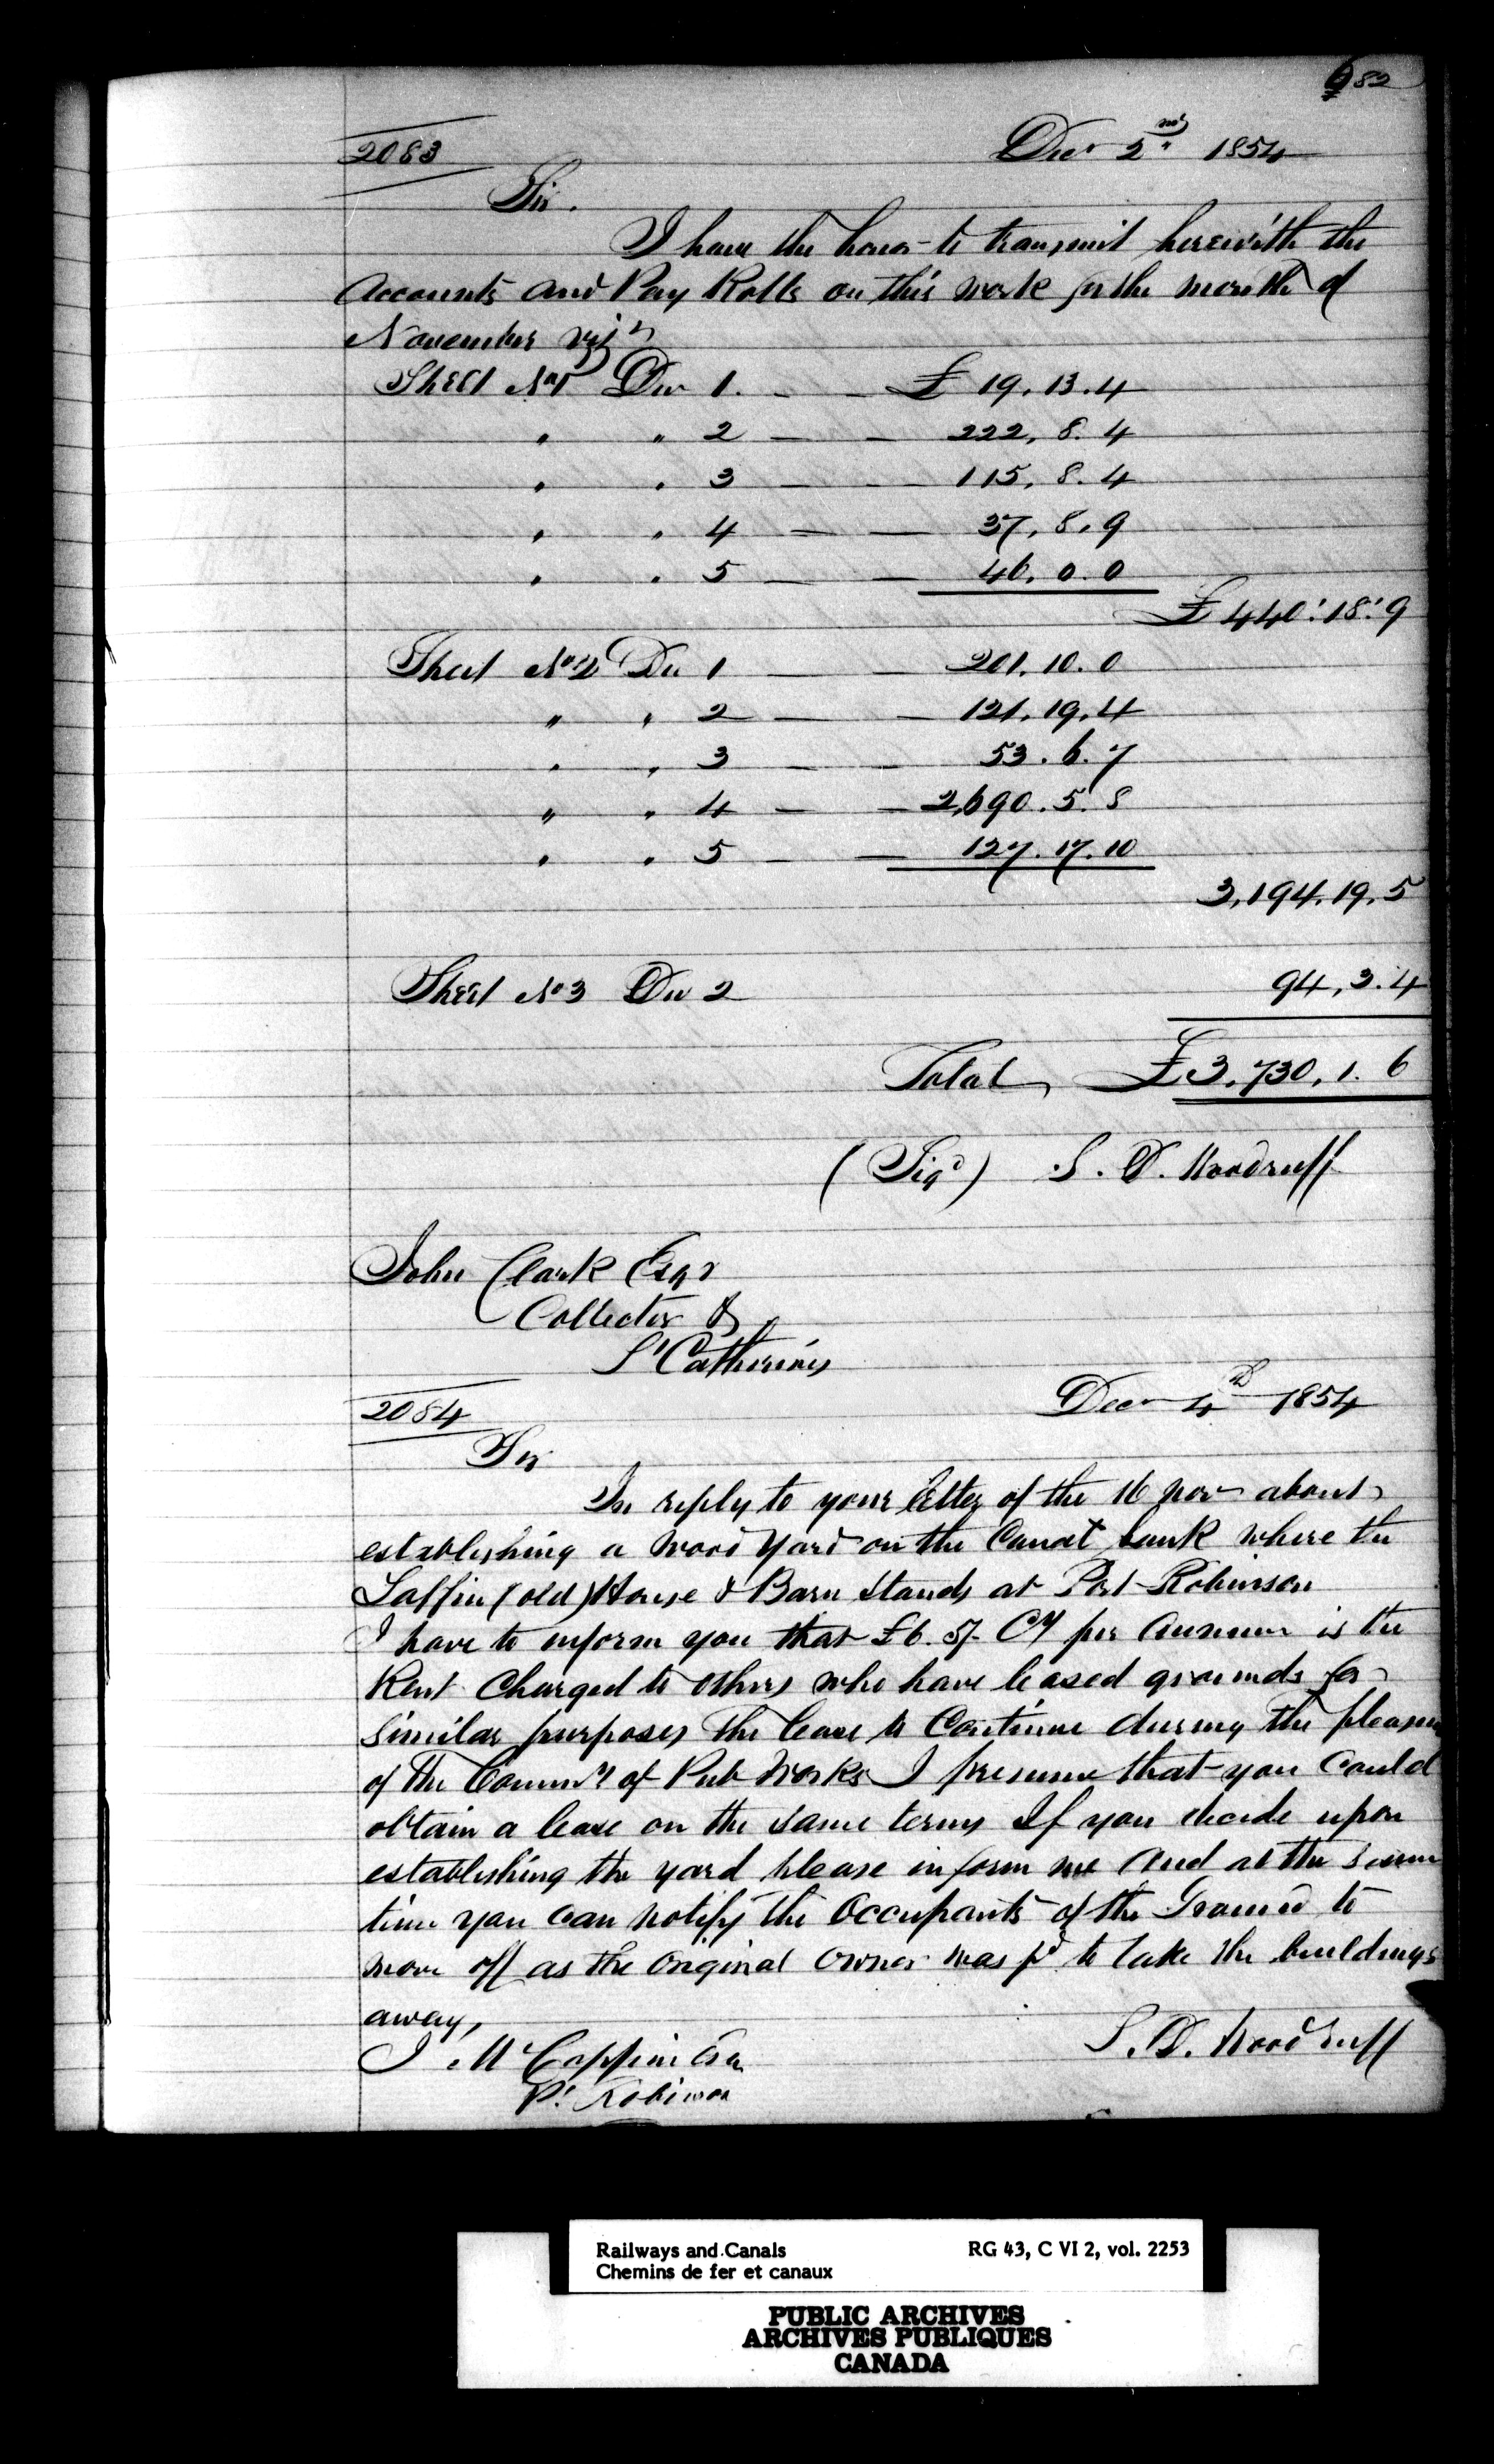 682
2083 Decr 2nd 1854
Sir.
I have the honor to transmit herewith the
Accounts and Pay Rolls on this work for the month of
November viz
Sheet No 1 Div 1. — — £ 19. 13. 4
" " 2 — — 222. 8. 4
" " 3 — — 115. 8. 4
" " 4 — — 37. 8. 9
" " 5 — — 46. 0. 0
£ 440. 18. 9
Sheet No 2 Div 1 — — 201. 10. 0
" " 2 — — 121. 19. 4
" " 3 — — 53. 6. 7
" " 4 — — 2,690. 5. 8
" " 5 — — 127. 17. 10
3,194. 19. 5
Sheet No 3 Div 2 94. 3. 4
Total £ 3,730. 1. 6
(Sigd) S. D. Woodruff
John Clark Esqr
Collector &
St Catherines
2084 Decr 4th 1854
Sir
In reply to your letter of the 16 Novr about
establishing a Wood Yard on the Canal bank where the
Laffin (old) House & Barn stands at Port Robinson
I have to inform you that £6. 5/- Cy per Annum is the
Rent Charged to others who have leased grounds for
similar purposes the lease to Continue during the pleasure
of the Commrs of Pub Works I presume that you Could
obtain a lease on the same terms If you decide upon
establishing the yard please inform me And at the same
time you can notify the Occupants of the Ground to
move off as the original owner was pd to take the buildings
away,
S. D. Woodruff
J McCoppin Esqr
Pt Robinson
Railways and Canals RG 43, C VI 2, vol. 2253
Chemins de fer et canaux
PUBLIC ARCHIVES
ARCHIVES PUBLIQUES
CANADA